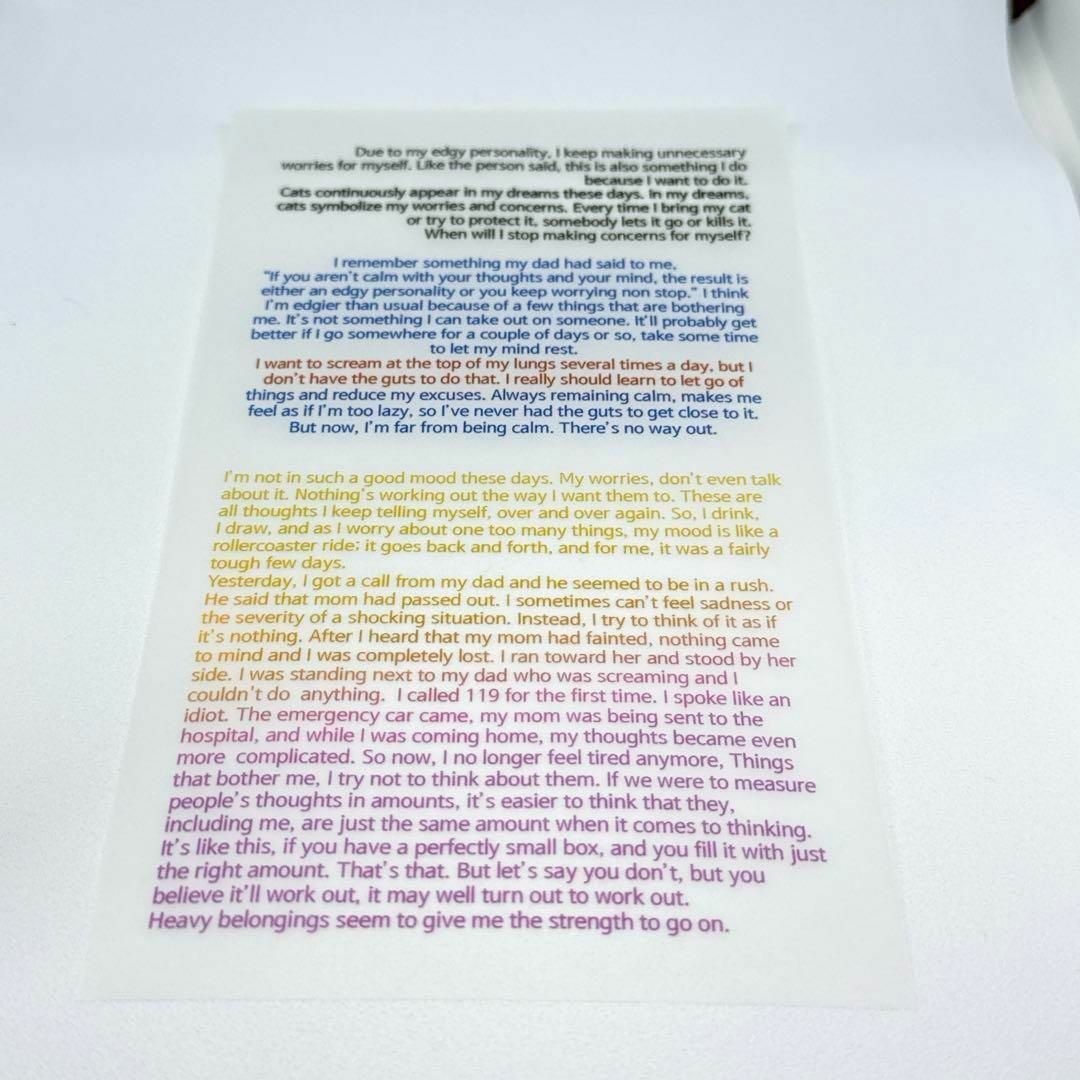 Due to my edgy personality, I keep making unnecessary
worries for myself. Like the person said, this is also something I do
because I want to do it.
Cats continuously appear in my dreams these days. In my dreams,
cats symbolize my worries and concerns. Every time I bring my cat
or try to protect it, somebody lets it go or kills it.
When will I stop making concerns for myself?
I remember something my dad had said to me,
"If you aren't calm with your thoughts and your mind, the result is
either an edgy personality or you keep worrying non stop." I think
I'm edgier than usual because of a few things that are bothering
me. It's not something I can take out on someone. It'll probably get
better if I go somewhere for a couple of days or so, take some time
to let my mind rest.
I want to scream at the top of my lungs several times a day, but I
don't have the guts to do that. I really should learn to let go of
things and reduce my excuses. Always remaining calm, makes me
feel as if I'm too lazy, so I've never had the guts to get close to it.
But now, I'm far from being calm. There's no way out.
I'm not in such a good mood these days. My worries, don't even talk
about it. Nothing's working out the way I want them to. These are
all thoughts I keep telling myself, over and over again. So, I drink,
I draw, and as I worry about one too many things, my mood is like a
rollercoaster ride; it goes back and forth, and for me, it was a fairly
tough few days.
Yesterday, I got a call from my dad and he seemed to be in a rush.
He said that mom had passed out. I sometimes can't feel sadness or
the severity of a shocking situation. Instead, I try to think of it as if
it's nothing. After I heard that my mom had fainted, nothing came
to mind and I was completely lost. I ran toward her and stood by her
side. I was standing next to my dad who was screaming and I
couldn't do anything. I called 119 for the first time. I spoke like an
idiot. The emergency car came, my mom was being sent to the
hospital, and while I was coming home, my thoughts became even
more complicated. So now, I no longer feel tired anymore, Things
that bother me, I try not to think about them. If we were to measure
people's thoughts in amounts, it's easier to think that they,
including me, are just the same amount when it comes to thinking.
It's like this, if you have a perfectly small box, and you fill it with just
the right amount. That's that. But let's say you don't, but you
believe it'll work out, it may well turn out to work out.
Heavy belongings seem to give me the strength to go on.